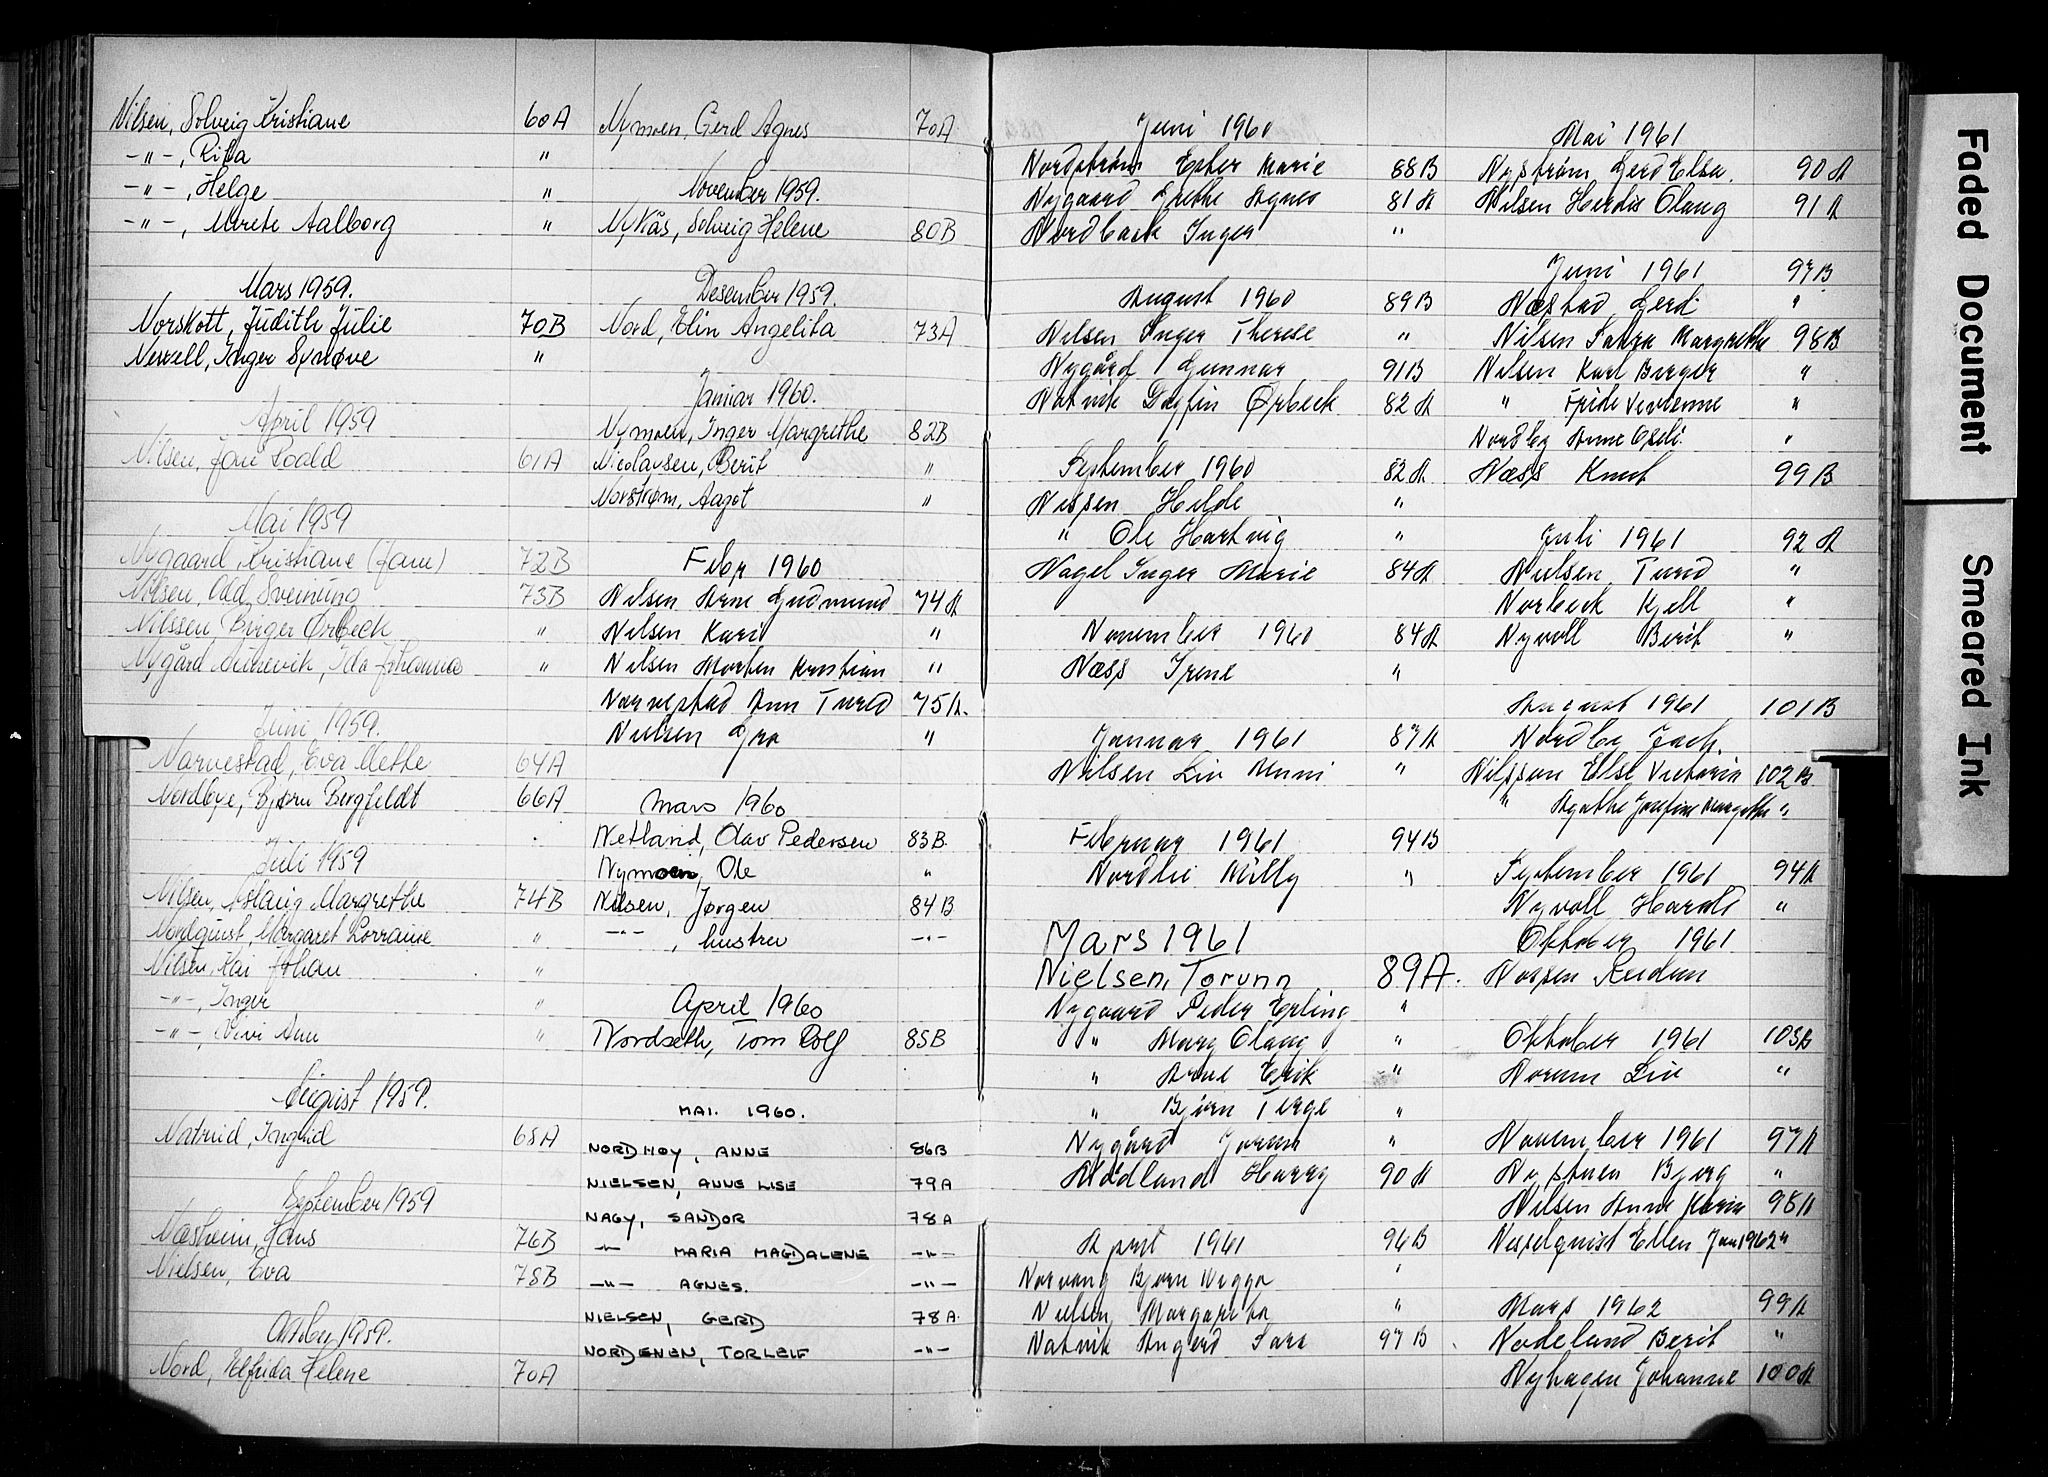 Nilsen, Solveig Kristiane 60A
-"-, Rita "
-"-, Helge "
-"-, Merete Aalborg "
Mars 1959.
Norskott, Judith Julie 70B
Newell, Inger Synøve "
April 1959
Nilsen, Roald 61A
Mai 1959
Nygaard, Kristiane (fam) 72B
Nilsen, Odd Sveinung 73B
Nilssen, Birger Ørbeck "
Nygård Ida Johanna "
Juni 1959.
Narvestad, Eva Methe 64A
Nordbye, Bjørn Bergfeldt 66A
Juli 1959
Nilsen, Aslaug Margrethe 74B
Nordquist, Margaret Lorraine "
Nilsen, Kai Johan "
-"-, Inger "
-"-, Vivi Ann "
August 1959.
Natrud, Ingrid 68A
September 1959
Næsheim, Hans 76B
Nielsen, Eva 78B
Oktober 1959.
Nord, Elfrida Helene 70A
Nymoen, Gerd Agnes 70A
November 1959.
Nykås, Solveig Helene 80B
Desember 1959.
Nord, Elin Angelita 73A
Januar 1960.
Nymoen, Inger Margrethe 82B
Nicolaysen, Berit "
Norstrøm, Aagot "
Febr 1960
Nilsen Arne Gudmund 74A
Nilsen Kari "
Nilsen Morten Kristian "
Narvestad Ann Turid 75A.
Nielsen Gro "
Mars 1960
Netland, Olav Pedersen 83B.
Nymoen, Ole "
Nilsen, Jørgen 84B
-"-, hustru -"-
April 1960
Nordseth, Tom Rolf 85B
MAI. 1960.
NORDHOY, ANNE 86B
NIELSEN, ANNE LISE 79A
NAGY, SANDOR 78A
-"- MARIA MAGDALENE -"-
-"- AGNES. -"-
NIELSEN, GERD 78A.
NORDENEN, TORLEIF -"-
Juni 1960
Nordstrøm Ester Marie 88B
Nygaard Grethe Agnes 81A
Nordback Inger "
August 1960 89B
Nilsen Inger Therese "
Nygård Gunnar 91B
Natvik Dagfin Ørbeck 82A
September 1960 82A
Nilssen Hilde "
" Ole Hartvig "
Nagel Inger Marie 84A
November 1960 84A
Næss Irene "
Januar 1961 87A
Nilsen Liv Unni "
Februar 1961 94B
Nordli Willy "
Mars 1961
Nielsen, Torunn 89A.
Nygaard Peder Erling "
" Mary Olaug "
" Arne Erik "
" Bjørn Terge "
Nygård Jorunn "
Nødland Harry 90A
April 1961 96B
Norvang Bjørn Viggo "
Nielsen Margareta "
Natvik Sara 97B
Mai 1961
Nystrøm Gerd Elsa. 90A
Nilsen Herdis Olaug 91A
Juni 1961 97B
Næstad Gerd "
Nilsen Margrethe 98B
Nilsen Karl Birger "
" Vivienne "
Nordby Anne "
Næss Knut 99B
Juli 1961 92A
Nielsen, Turid "
Norbeck Kjell "
Nyvoll Berit "
August 1961 101B
Nordby Jack.
Nilsson Else Victoria 102B.
" Agathe Josefine Margrethe "
September 1961 94A
Nyvoll Harald "
Oktober 1961
Reidun
Oktober 1961 103B
Norum Liv "
November 1961 97A
Nystuen Bjørg "
Nilsen Anne Karin 98A
Nesselquist Ellen Jan 1962 "
Mars 1962 99A
Nodeland Berit "
Nyhagen Johanne 100A
Faded Document
Smeared Ink